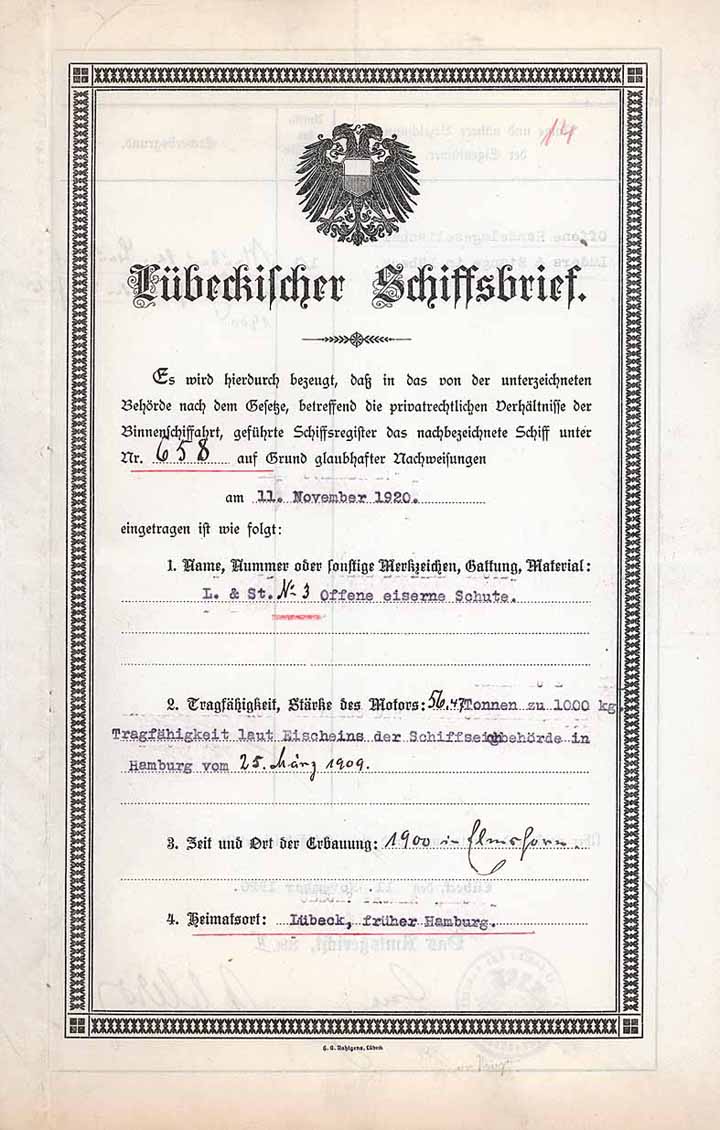 14
Lübeckischer Schiffsbrief.
Es wird hierdurch bezeugt, daß in das von der unterzeichneten
Behörde nach dem Gesetze, betreffend die privatrechtlichen Verhältnisse der
Binnenschiffahrt, geführte Schiffsregister das nachbezeichnete Schiff unter
Nr. 658 auf Grund glaubhafter Nachweisungen
am 11. November 1920.
eingetragen ist wie folgt:
1. Name, Nummer oder sonstige Merkzeichen, Gattung, Material:
L. & St. No 3 Offene eiserne Schute.
2. Tragfähigkeit, Stärke des Motors: 56.47 Tonnen zu 1000 kg.
Tragfähigkeit laut Eischeins der Schiffseichbehörde in
Hamburg vom 25. März 1909.
3. Zeit und Ort der Erbauung: 1900 in Elmshorn.
4. Heimatsort: Lübeck, früher Hamburg.